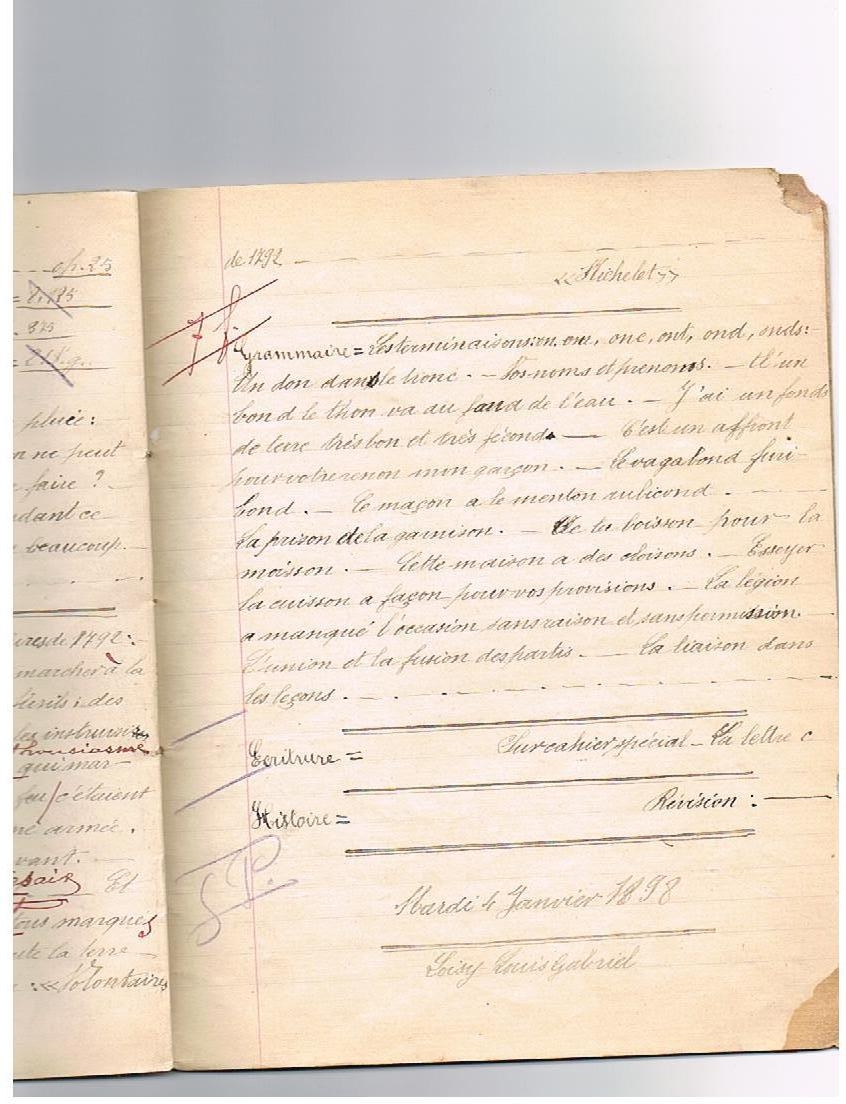 op. 25
= 8.125
. 875
pluie :
on ne peut
faire ?
ndant ce
beaucoup. —
ires de 1792 : —
marcher à la
périls ; des
les instruisi
thousiasme
qui mar-
feu / c'étaient
ne armée.
vant. —
Et
tous marques
oute la terre —
: « Volontaires
de 1792 —
« Michelet »
Grammaire = Les terminaisons : on, om, onc, ont, ond, onds : -
Un don dans le tronc. — Vos noms et prénoms. — D'un
bond le thon va au fond de l'eau. — J'ai un fonds
de terre très bon et très fécond. — C'est un affront
pour votre renom mon garçon. — Le vagabond furi-
bond. — Le maçon a le menton rubicond. —
La prison de la garnison. — De la boisson pour la
moisson. — Cette maison a des cloisons. — Essayer
la cuisson a façon pour vos provisions. — La légion
a manqué l'occasion sans raison et sans permission.
L'union et la fusion des partis. — La liaison dans
les leçons. —
Ecritrure = Sur cahier spécial — La lettre c
Histoire = Révision : —
Mardi 4 Janvier 1898
Loisy Louis Gabriel